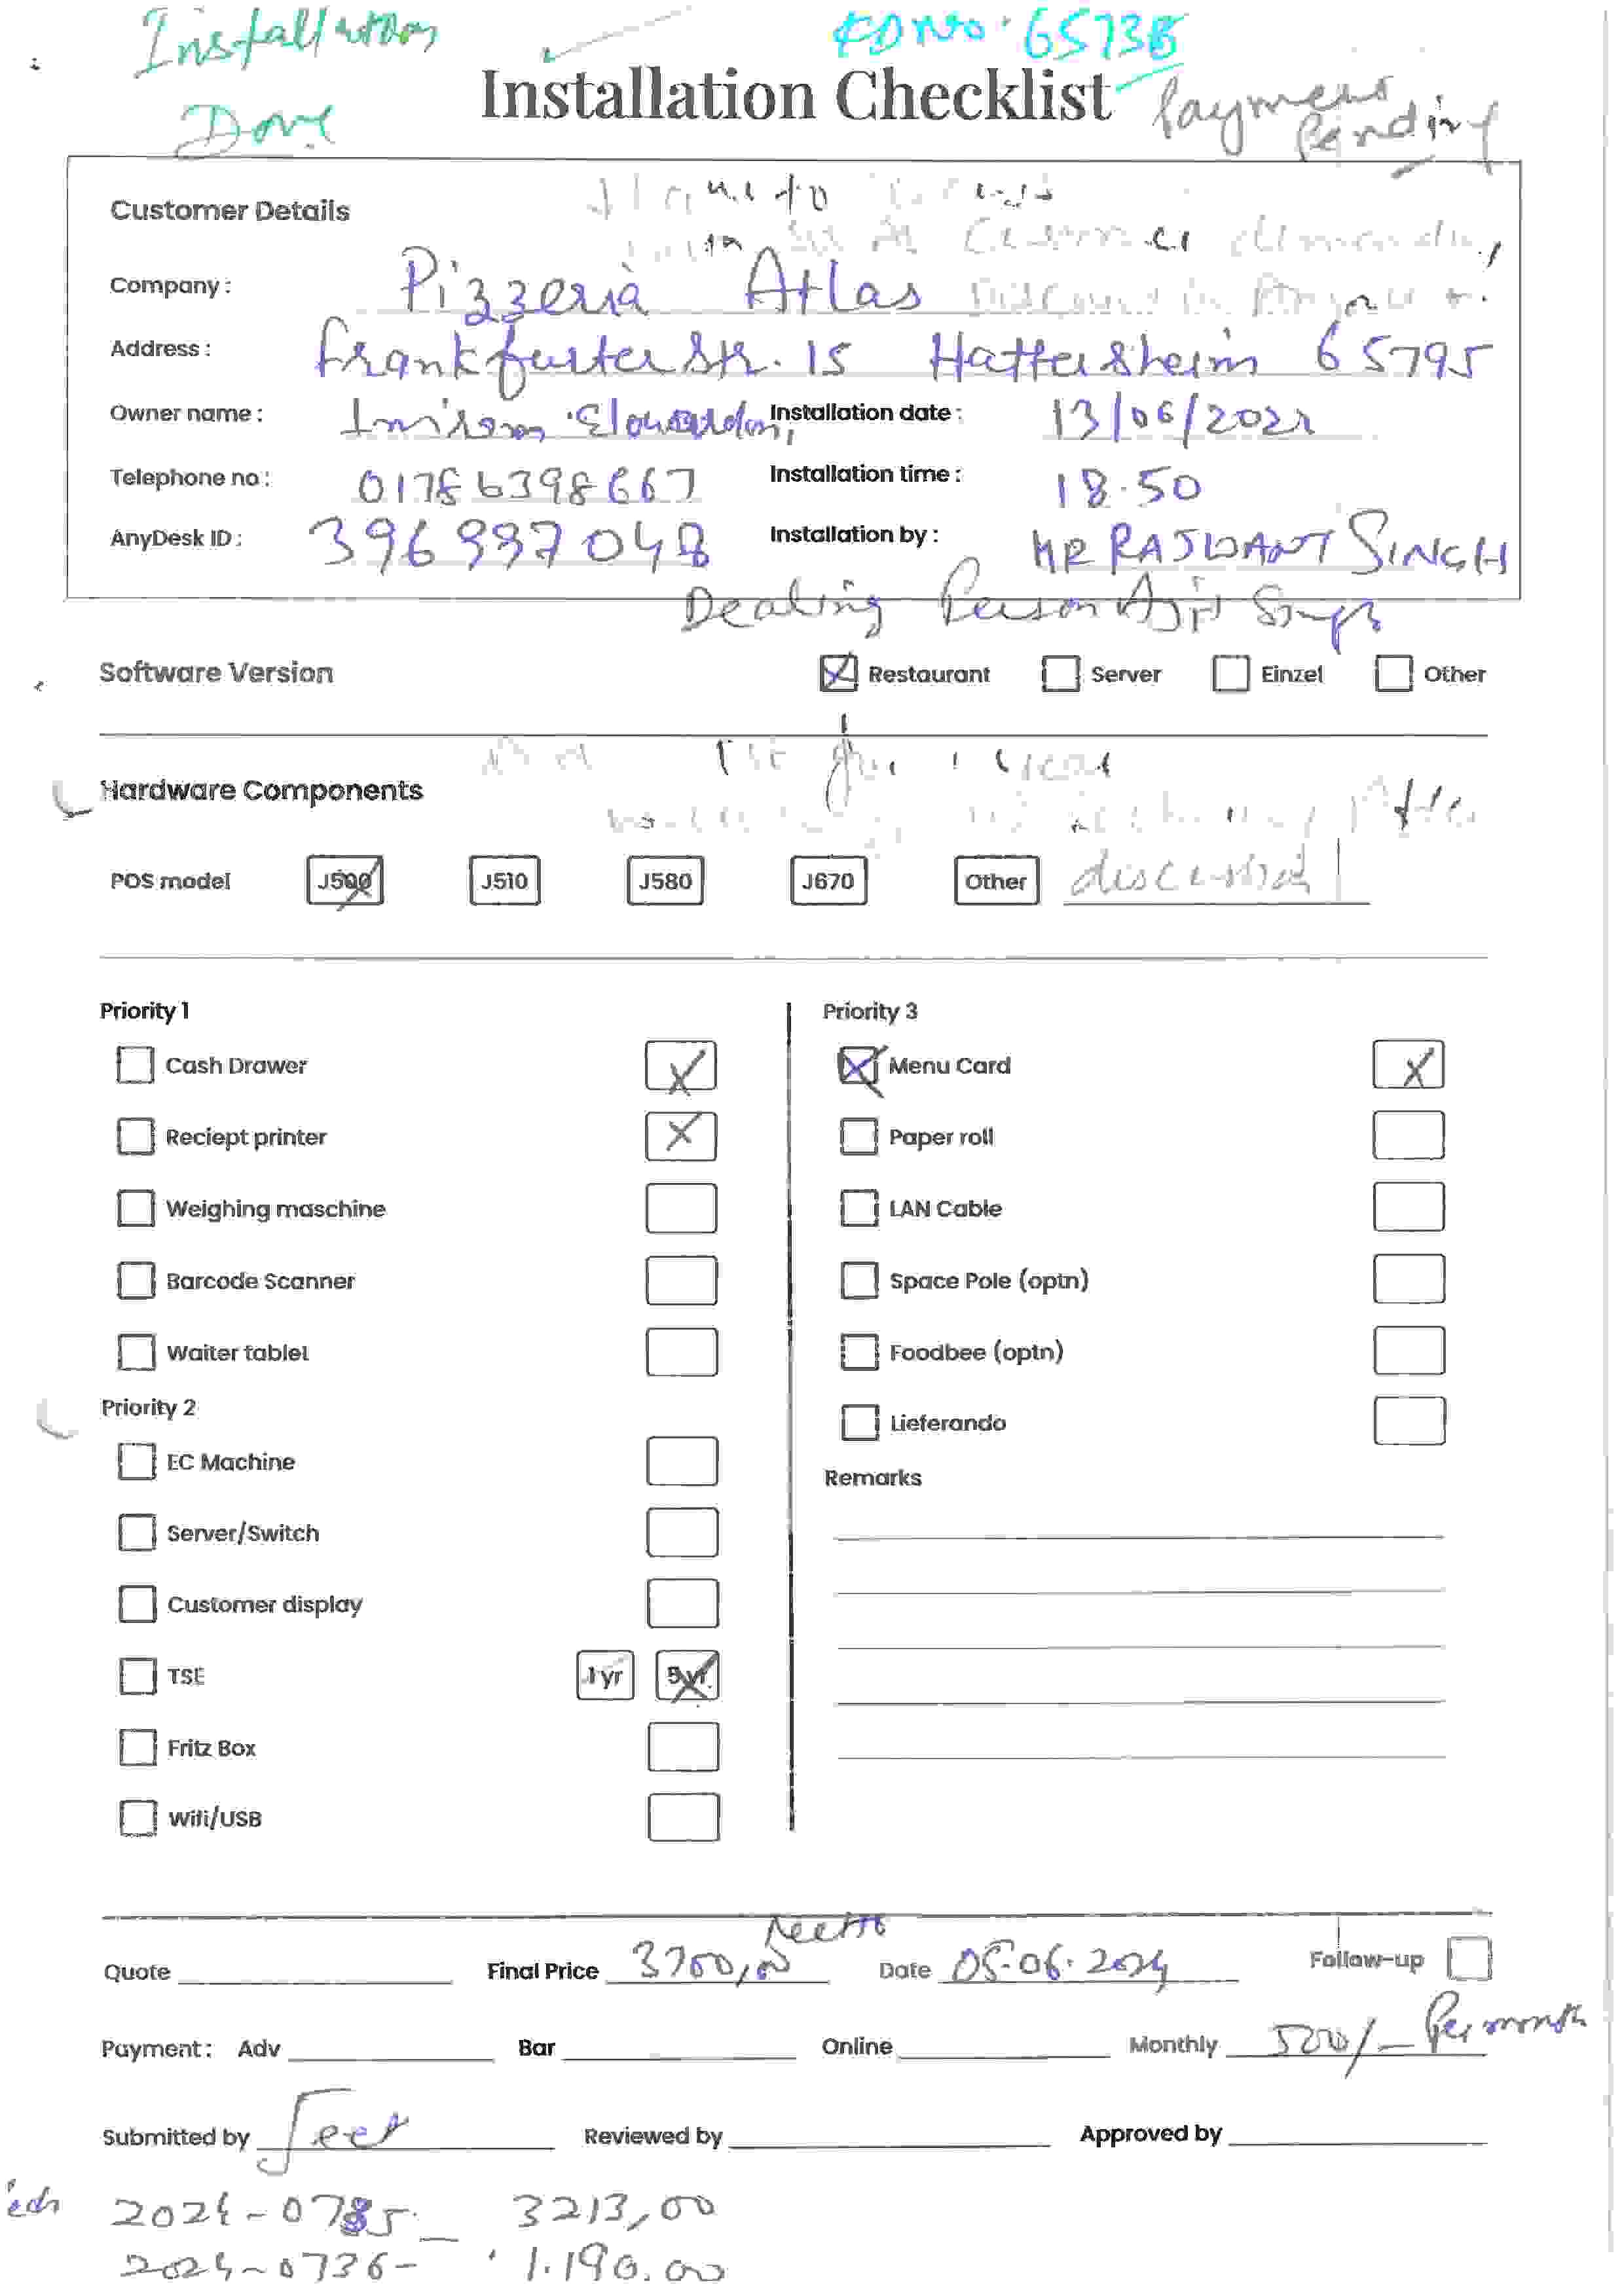 Installation
Done
KD No. 65738
Installation Checklist
Payment
Pending
Customer Details
Company: Pizzeria Atlas
Address: Frankfurter Str. 15 Hattersheim 65795
Owner name: Installation date: 13/06/2024
Telephone no: 01786398667 Installation time: 18.50
AnyDesk ID: 396997048 Installation by: MR RAJWANT SINGH
Dealing Person Ajit Singh
Software Version Restaurant Server Einzel Other
Hardware Components
POS model J500 J510 J580 J670 Other discussion
Priority 1
Cash Drawer
Reciept printer
Weighing maschine
Barcode Scanner
Waiter tablet
Priority 2
EC Machine
Server/Switch
Customer display
TSE 1 yr 5 yr.
Fritz Box
Wifi/USB
Priority 3
Menu Card
Paper roll
LAN Cable
Space Pole (optn)
Foodbee (optn)
Lieferando
Remarks
Quote Final Price 3700,00 Netto Date 05.06.2024 Follow-up
Payment: Adv Bar Online Monthly 500/- Per month
Submitted by Jeet Reviewed by Approved by
2024-0735 - 3213,00
2024-0736 - 1.190.00